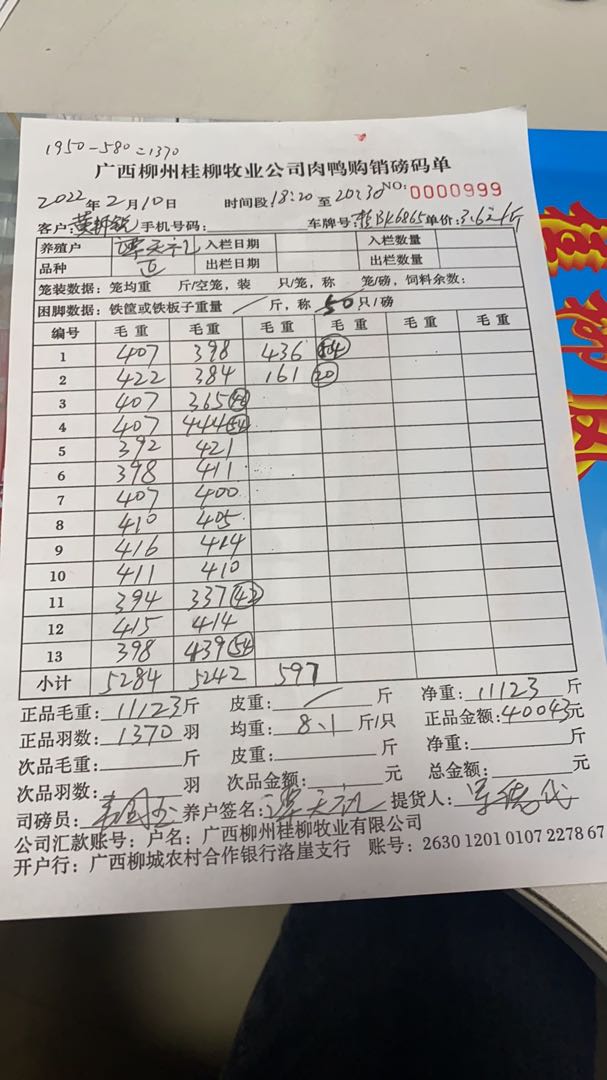 1950-580=1370
广西柳州桂柳牧业公司肉鸭购销磅码单
2022年2月10日 时间段18:20至20:30 NO: 0000999
客户: 手机号码: 车牌号:桂BK6865 单价:3.6元/斤
养殖户 入栏日期 入栏数量
品种 出栏日期 出栏数量
笼装数据: 笼均重 斤/空笼, 装 只/笼, 称 笼/磅, 饲料余数:
困脚数据: 铁筐或铁板子重量 / 斤, 称 50 只/磅
编号 毛重 毛重 毛重 毛重 毛重 毛重
1 407 398 436 54
2 422 384 161 20
3 407 365 46
4 407 444 54
5 392 421
6 398 411
7 407 400
8 410 405
9 416 414
10 411 410
11 394 337 42
12 415 414
13 398 439 54
小计 5284 5242 597
正品毛重: 11123斤 皮重: / 斤 净重: 11123 斤
正品羽数: 1370 羽 均重: 8.1 斤/只 正品金额: 40043元
次品毛重: 斤 皮重: 斤 净重: 斤
次品羽数: 羽 次品金额: 元 总金额: 元
司磅员: 养户签名: 提货人:
公司汇款账号: 户名: 广西柳州桂柳牧业有限公司
开户行: 广西柳城农村合作银行洛崖支行 账号: 2630 1201 0107 2278 67